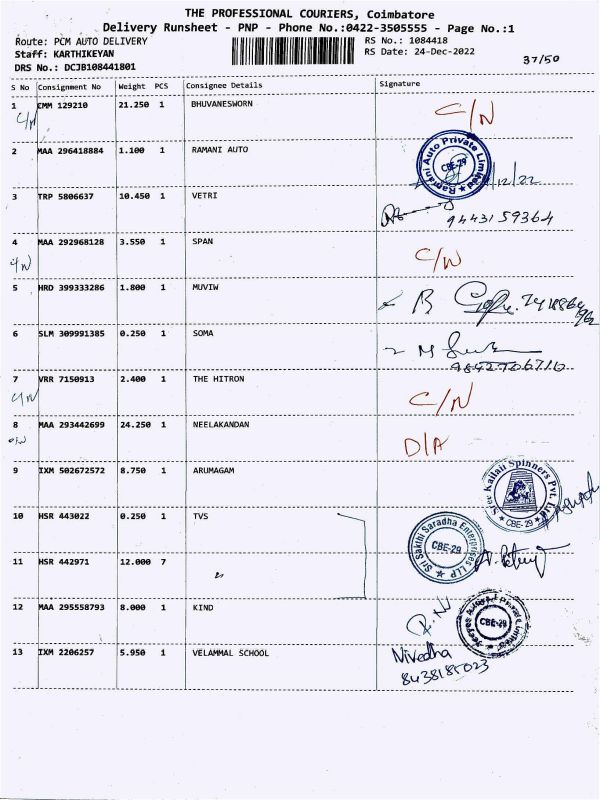 THE PROFESSIONAL COURIERS, Coimbatore
Delivery Runsheet - PNP - Phone No.:0422-3505555 - Page No.:1
Route: PCM AUTO DELIVERY RS No.: 1084418
Staff: KARTHIKEYAN RS Date: 24-Dec-2022 37/50
DRS No.: DCJB108441801
S No Consignment No Weight PCS Consignee Details Signature
1 EMM 129210 21.250 1 BHUVANESWORN C/N
C/N
2 MAA 296418884 1.100 1 RAMANI AUTO Ramani Auto Private Limited CBE-29 /12/22
3 TRP 5806637 10.450 1 VETRI
9443159364
4 MAA 292968128 3.550 1 SPAN C/N
C/N
5 HRD 399333286 1.800 1 MUVIW
6 SLM 309991385 0.250 1 SOMA
9842706710
7 VRR 7150913 2.400 1 THE HITRON C/N
C/N
8 MAA 293442699 24.250 1 NEELAKANDAN D/A
9 IXM 502672572 8.750 1 ARUMAGAM Sree Kailah Spinners Pvt. Ltd CBE-29
10 HSR 443022 0.250 1 TVS Sri Sakthi Saradha Enterprises LLP CBE-29
11 HSR 442971 12.000 7 "
12 MAA 295558793 8.000 1 KIND CBE-29
13 IXM 2206257 5.950 1 VELAMMAL SCHOOL Nivedha
8438185023